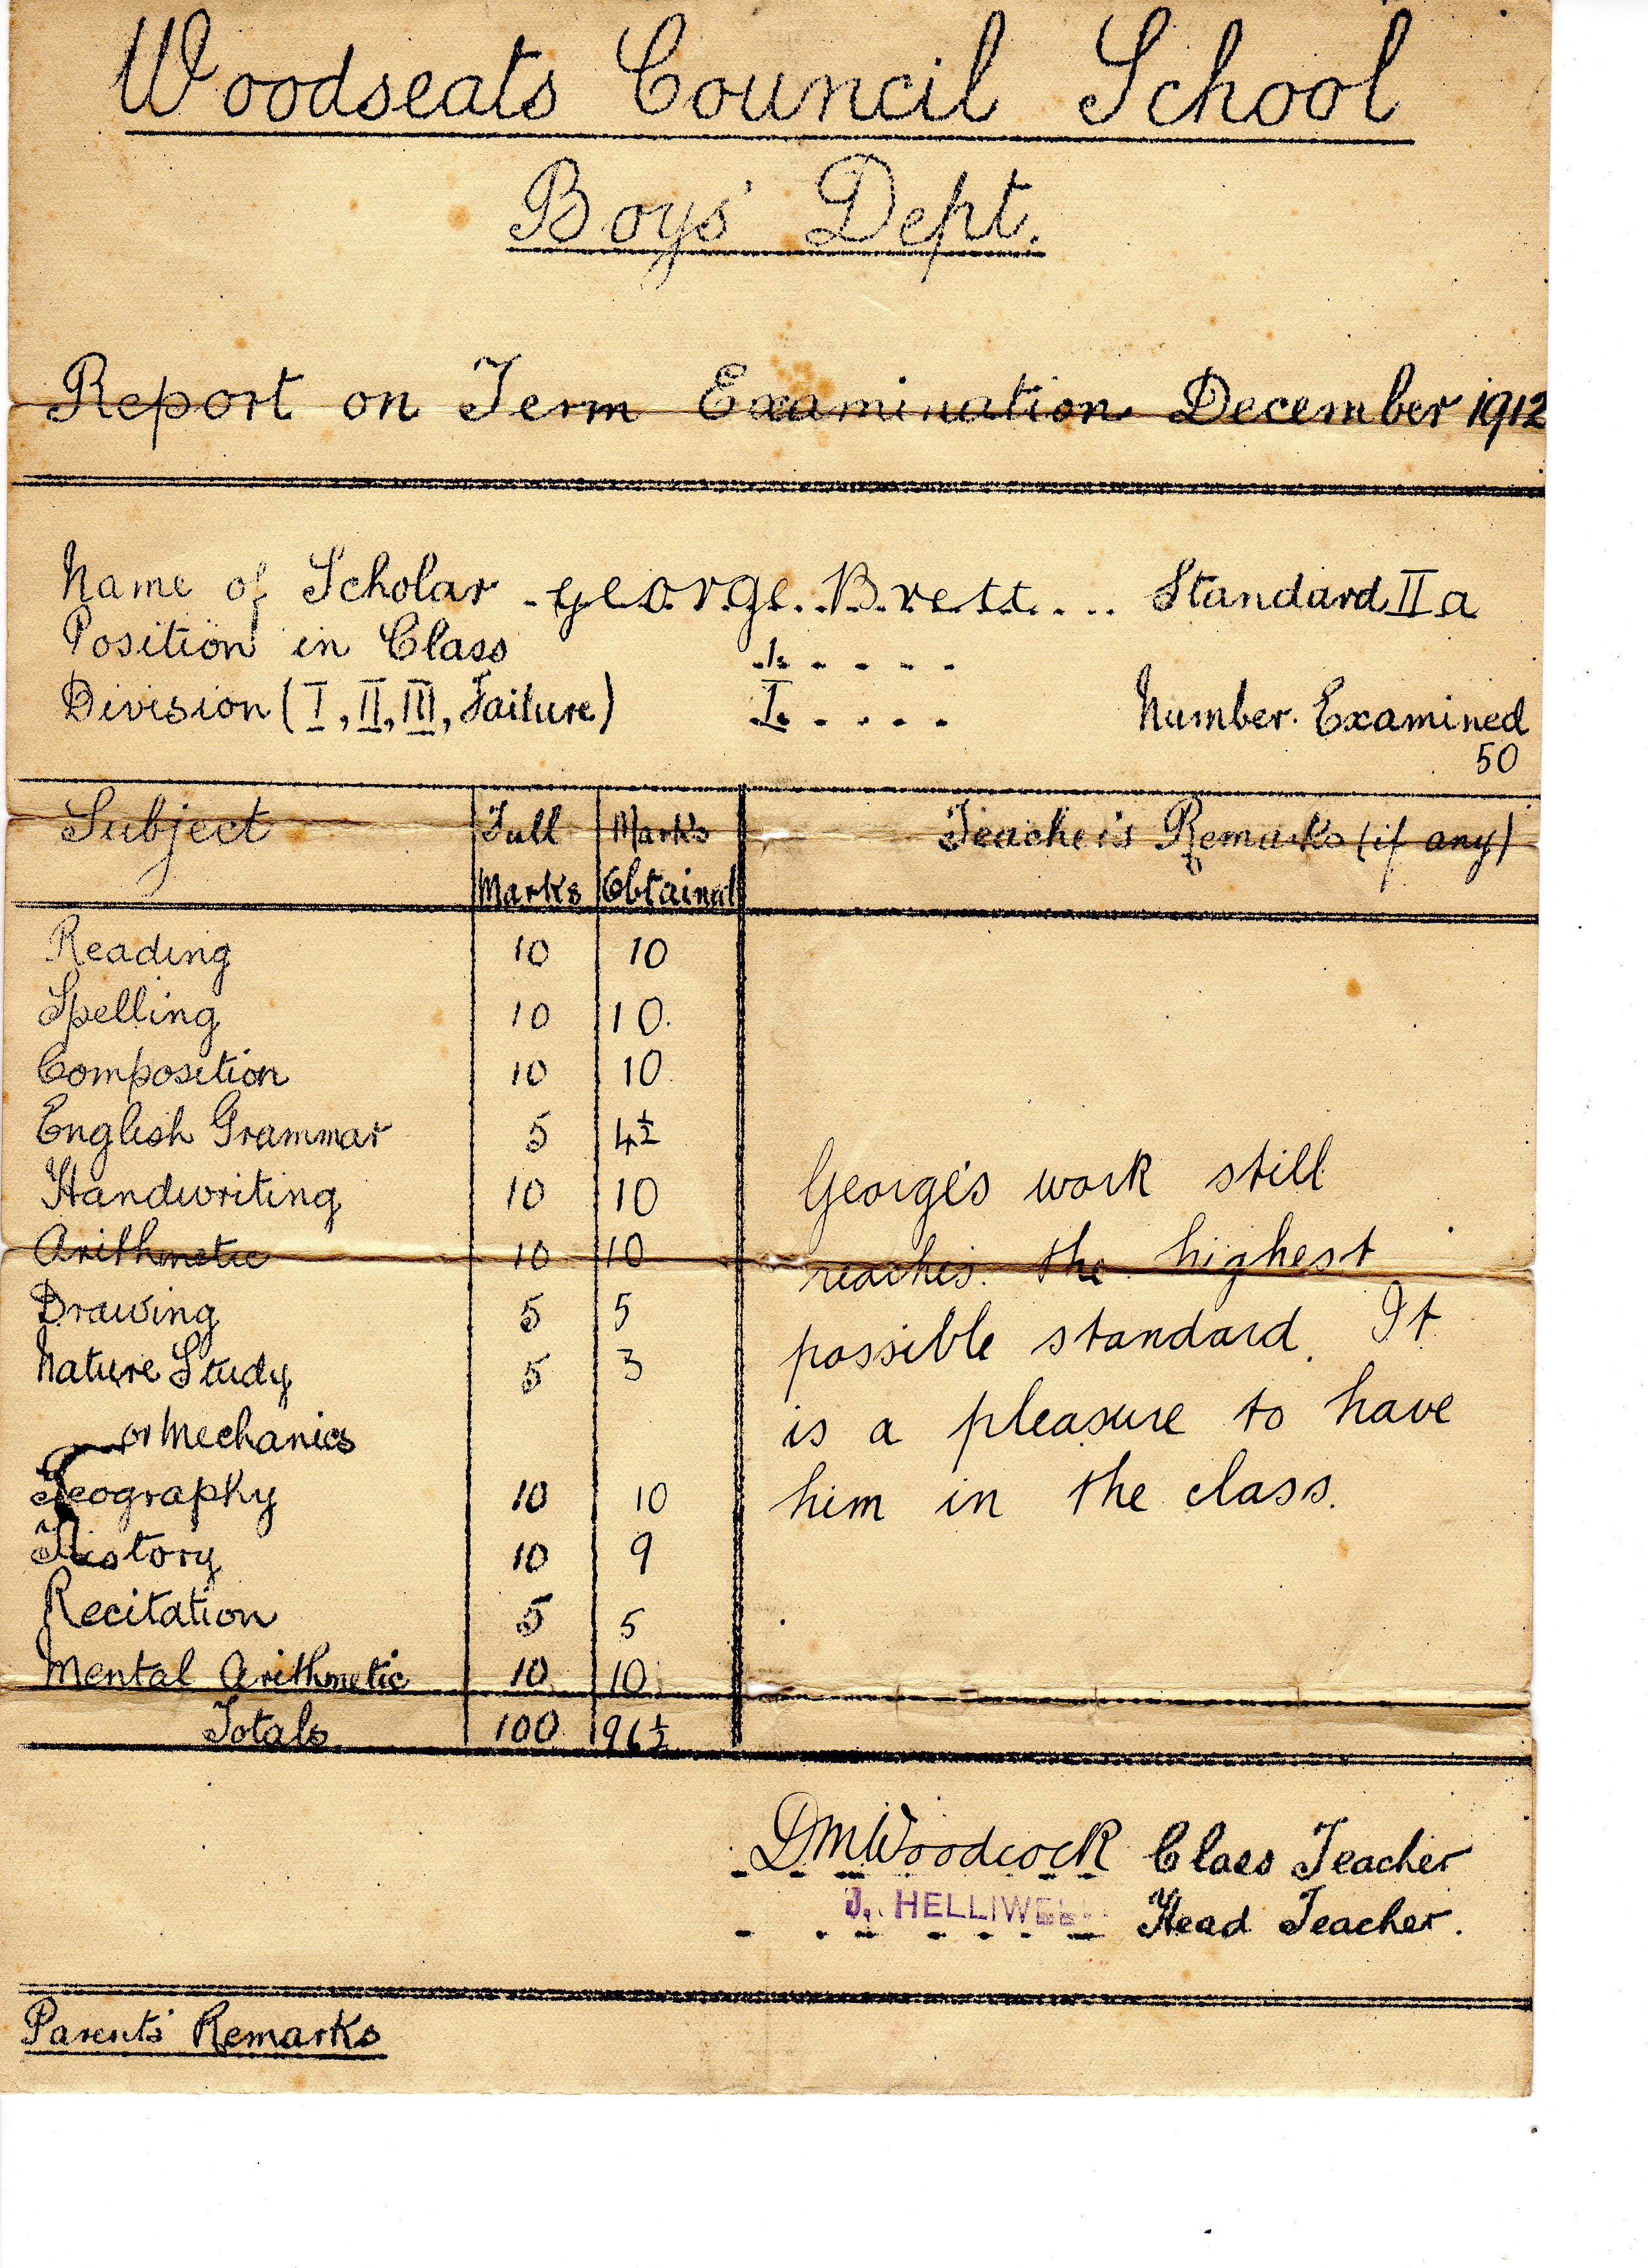 Woodseats Council School
Boys' Dept.
Report on Term Examination December 1912
Name of Scholar George Brett Standard IIa
Position in Class 1.
Division (I, II, III, Failure) I. Number Examined
50
Subject Full Marks Teacher's Remarks (if any)
Marks Obtained
Reading 10 10
Spelling 10 10.
Composition 10 10
English Grammar 5 4½
Handwriting 10 10 George's work still
Arithmetic 10 10 reaches the highest
Drawing 5 5 possible standard. It
Nature Study 5 3
or Mechanics is a pleasure to have
Geography 10 10 him in the class.
History 10 9
Recitation 5 5
Mental Arithmetic 10 10
Totals 100 96½
DMWoodcock Class Teacher
J. HELLIWELL Head Teacher.
Parents' Remarks